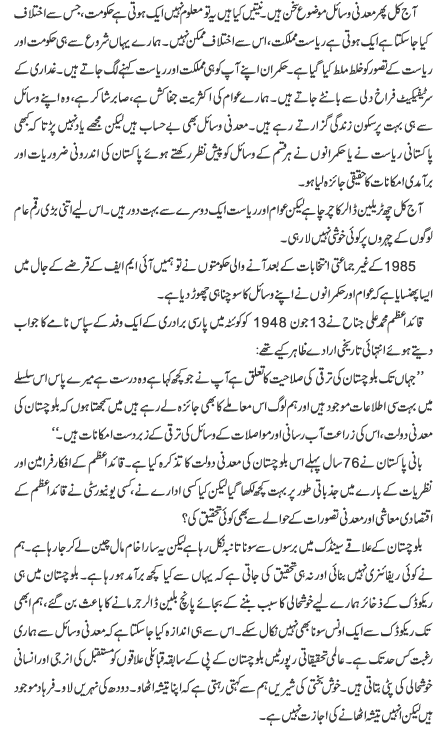 آج کل پھر معدنی وسائل موضوع سخن ہیں۔ نیتیں کیا ہیں یہ تو معلوم نہیں ایک ہوتی ہے حکومت، جس سے اختلاف
کیا جا سکتا ہے ایک ہوتی ہے ریاست مملکت، اس سے اختلاف ممکن نہیں۔ ہمارے یہاں شروع سے ہی حکومت اور
ریاست کے تصور کو خلط ملط کیا گیا ہے۔ حکمران اپنے آپ کو ہی مملکت ریاست کہنے لگ جاتے ہیں۔ غداری کے
سرٹیفکیٹ فراخ دلی سے بانٹے جاتے ہیں۔ ہمارے عوام کی اکثریت جفاکش ہے، صابر شاکر ہے، وہ اپنے وسائل
سے ہی بہت پر سکون زندگی گزارتے رہے ہیں۔ معدنی وسائل بھی بے حساب ہیں لیکن مجھے یاد نہیں پڑتا کہ کبھی
پاکستانی ریاست نے یا حکمرانوں نے ہر قسم کے وسائل کو پیش نظر رکھتے ہوئے پاکستان کی اندرونی ضروریات اور
برآمدی امکانات کا حقیقی جائزہ لیا ہو۔
آج کل چھ ٹریلین ڈالر کا چرچا ہے لیکن عوام اور ریاست ایک دوسرے سے بہت دور ہیں۔ اس لیے اتنی بڑی رقم عام
لوگوں کے چہروں پر کوئی خوشی نہیں لا رہی۔
1985 کے غیر جماعتی انتخابات کے بعد آنے والی حکومتوں نے تو ہمیں آئی ایم ایف کے قرضے کے جال میں
ایسا پھنسایا ہے کہ عوام اور حکمرانوں نے اپنے وسائل کا سوچنا ہی چھوڑ دیا ہے۔
قائد اعظم محمد علی جناح نے 13 جون 1948 کو کوئٹہ میں پارسی برادری کے ایک وفد کے سپاس نامے کا جواب
دیتے ہوئے انتہائی تاریخی ارادے ظاہر کیے تھے:
’’جہاں تک بلوچستان کی ترقی کی صلاحیت کا تعلق ہے آپ نے جو کچھ کہا ہے وہ درست ہے میرے پاس اس سلسلے
میں بہت سی اطلاعات موجود ہیں اور ہم لوگ اس معاملے کا بھی جائزہ لے رہے ہیں میں سمجھتا ہوں کہ بلوچستان کی
معدنی دولت، اس کی زراعت آب رسانی اور مواصلات کے وسائل کی ترقی کے زبردست امکانات ہیں۔‘‘
بانی پاکستان نے 76 سال پہلے اس بلوچستان کی معدنی دولت کا تذکرہ کیا ہے۔ قائد اعظم کے افکار فرامین اور
نظریات کے بارے میں جذباتی طور پر بہت کچھ لکھا گیا لیکن کیا کسی ادارے نے، کسی یونیورسٹی نے قائد اعظم کے
اقتصادی معاشی اور معدنی تصورات کے حوالے سے بھی کوئی تحقیق کی؟
بلوچستان کے علاقے سینڈک میں برسوں سے سونا تانبا نکل رہا ہے لیکن یہ سارا خام مال چین لے کر جا رہا ہے۔ ہم
نے کوئی ریفائنری نہیں بنائی اور نہ ہی تحقیق کی جاتی ہے کہ یہاں سے کیا کچھ برآمد ہو رہا ہے۔ بلوچستان میں ہی
ریکوڈک کے ذخائر ہمارے لیے خوشحالی کا سبب بننے کے بجائے پانچ بلین ڈالر جرمانے کا باعث بن گئے، ہم ابھی
تک ریکوڈک سے ایک اونس سونا بھی نہیں نکال سکے۔ اس سے ہی اندازہ کیا جا سکتا ہے کہ معدنی وسائل سے ہماری
رغبت کس حد تک ہے۔ عالمی تحقیقاتی رپورٹیں بلوچستان کے پی کے سابقہ قبائلی علاقوں کو مستقبل کی انرجی اور انسانی
خوشحالی کی پٹی بتاتی ہیں۔ خوش بختی کی شیریں ہم سے کہتی رہتی ہے کہ اپنا تیشہ اٹھاؤ۔ دودھ کی نہریں لاؤ۔ فرہاد موجود
ہیں لیکن انہیں تیشہ اٹھانے کی اجازت نہیں ہے۔